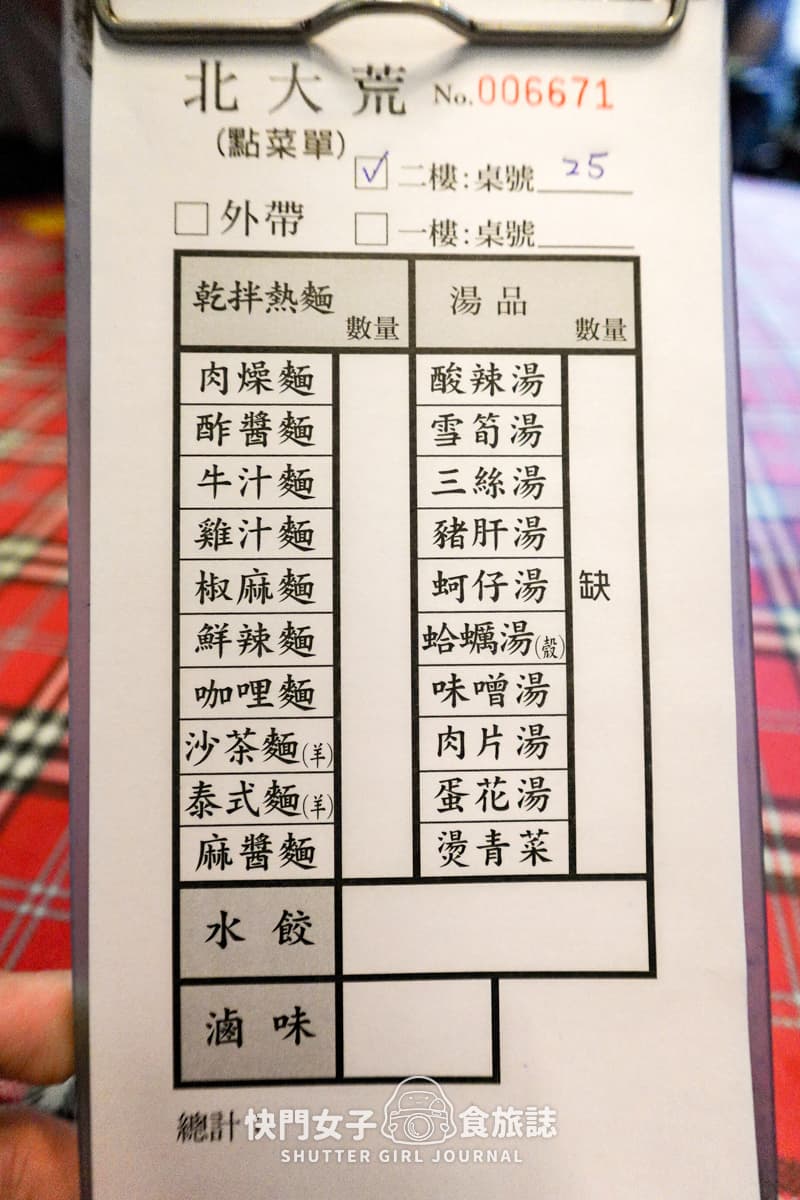 北大荒 No.006671
(點菜單)
☑ 二樓:桌號 25
□ 外帶 □ 一樓:桌號
乾拌熱麵 數量 湯品 數量
肉燥麵 酸辣湯
酢醬麵 雪筍湯
牛汁麵 三絲湯
雞汁麵 豬肝湯
椒麻麵 蚵仔湯 缺
鮮辣麵 蛤蠣湯(殼)
咖哩麵 味噌湯
沙茶麵(羊) 肉片湯
泰式麵(羊) 蛋花湯
麻醬麵 燙青菜
水餃
滷味
總計:
快門女子食旅誌
SHUTTER GIRL JOURNAL